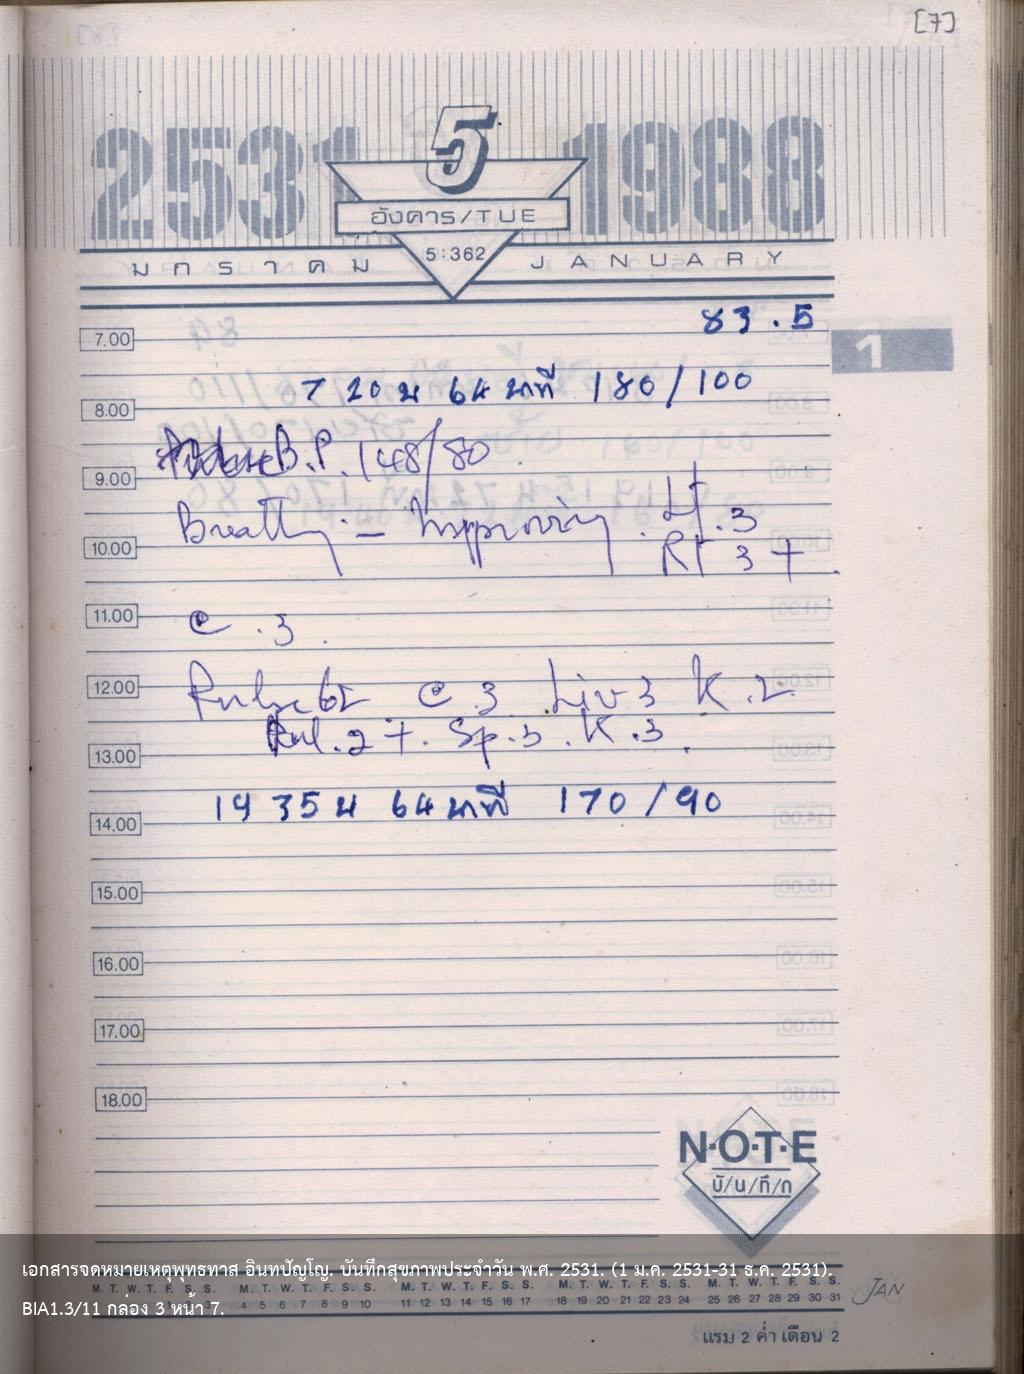 [7]
2531 5 1988
อังคาร/TUE
มกราคม 5:362 JANUARY
83.5
7.00
1
7 20 น 64 นาที 180/100
8.00
B.P. 148/80
9.00
Breathing - Improving. Lt.3
10.00
Rt 3+
11.00
C.3.
12.00
Pulse C.3 Liv 3 K.2
Pul.2+. Sp.3. K.3.
13.00
19 35 น 64 นาที 170/90
14.00
15.00
16.00
17.00
18.00
N·O·T·E
บั/น/ทึ/ก
เอกสารจดหมายเหตุพุทธทาส อินทปัญโญ. บันทึกสุขภาพประจำวัน พ.ศ. 2531. (1 ม.ค. 2531-31 ธ.ค. 2531).
M. T. W. T. F. S. S. M. T. W. T. F. S. S. M. T. W. T. F. S. S. M. T. W. T. F. S. S. M. T. W. T. F. S. S.
4 5 6 7 8 9 10 11 12 13 14 15 16 17 18 19 20 21 22 23 24 25 26 27 28 29 30 31 JAN
BIA1.3/11 กล่อง 3 หน้า 7.
แรม 2 ค่ำ เดือน 2